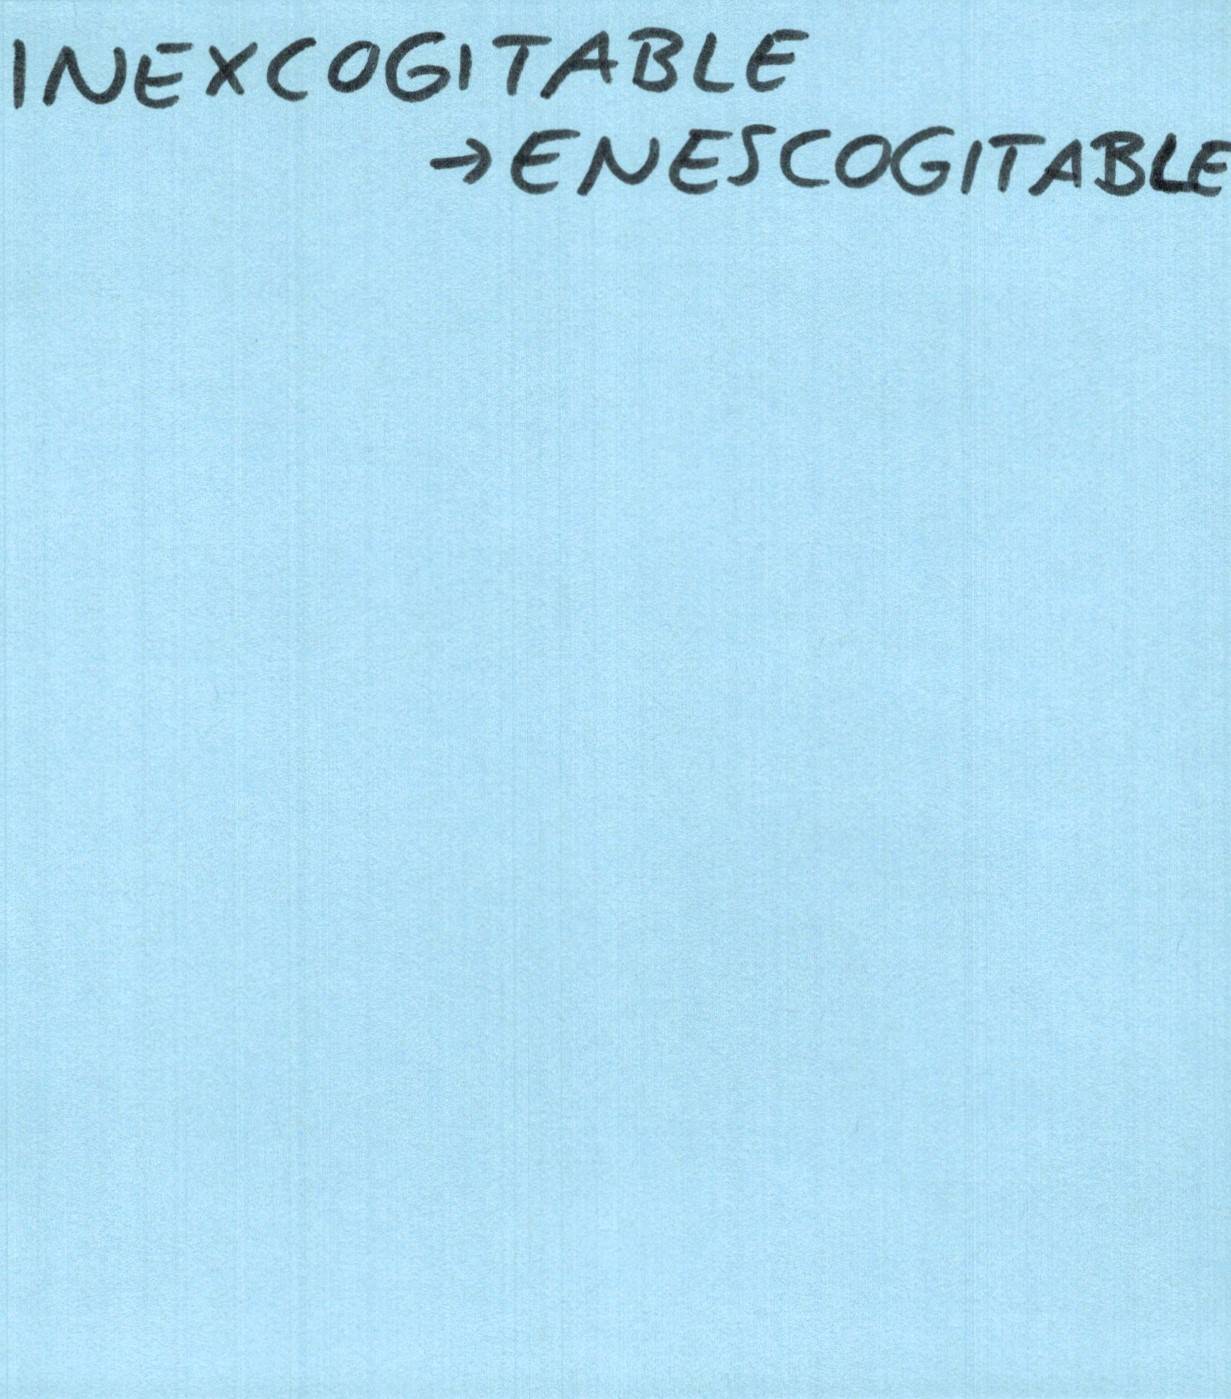 INEXCOGITABLE
→ENESCOGITABLE